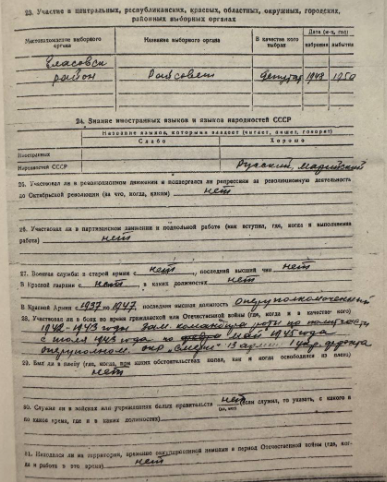 23. Участие в центральных, республиканских, краевых, областных, окружных, городских,
районных выборных органах
Местоположение выборного органа
Название выборного органа
В качестве кого выбран
Дата (м-ц, год)
избрания
выбытия
район
Райсовет
депутат
1948
1950
24. Знание иностранных языков и языков народностей СССР
Название языков, которыми владеет (читает, пишет, говорит)
Слабо
Хорошо
Иностранных
Народностей СССР
Русский,
25. Участвовал ли в революционном движении и подвергался ли репрессиям за революционную деятельность
до Октябрьской революции (за что, когда, каким) нет
26. Участвовал ли в партизанском движении и подпольной работе (где, когда и выполняемая
работа) нет
27. Военная служба: в старой армии с нет, последний высший чин нет
В Красной гвардии с нет, в каких должностях нет
В Красной Армии с 1937 по 1947, последняя высшая должность Оперуполномоченный
28. Участвовал ли в боях во время гражданской или Отечественной войны (где, когда и в качестве кого)
1942-1943 годы зам. командира роты по
с июля 1943 года по май 1945 года
оперуполном. окр "Смерш" 13 армии 1 Укр. фронта
29. Был ли в плену (где, когда, при каких обстоятельствах попал, как и когда освобожден из плена)
нет
30. Служил ли в войсках или учреждениях белых правительств нет (если служил, то указать, с какого и
по какое время, где и в каких должностях)
31. Находился ли на территории, временно оккупированной немцами в период Отечественной войны (где, ког-
да и работа в это время) нет